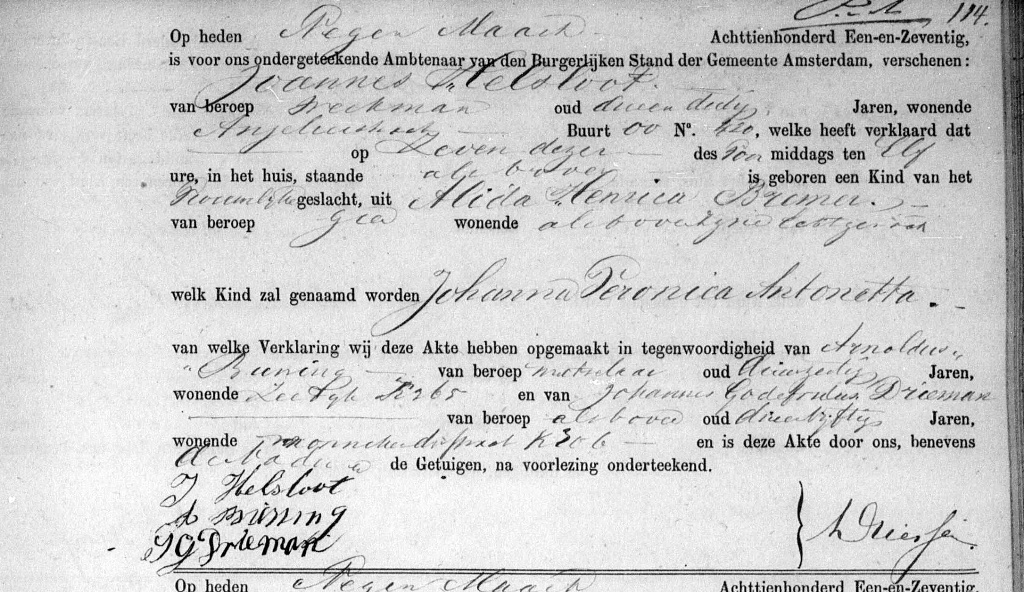 114.
Op heden Negen Maart Achttienhonderd Een-en-Zeventig,
is voor ons ondergeteekende Ambtenaar van den Burgerlijken Stand der Gemeente Amsterdam, verschenen:
Joannes Helsloot.
van beroep oud drieen dertig Jaren, wonende
Buurt OO No. 420, welke heeft verklaard dat
op Zeven dezer des Voor middags ten Elf
ure, in het huis, staande als boven is geboren een Kind van het
Vrouwelijke geslacht, uit Alida Henrica Bremer.
van beroep geen wonende als boven zijne echtgenoot
welk Kind zal genaamd worden Johanna Veronica Antonetta.
van welke Verklaring wij deze Akte hebben opgemaakt in tegenwoordigheid van Arnoldus
Büning van beroep metselaar oud Jaren,
wonende en van Johannes Godefridus Drieman
van beroep als boven oud Jaren,
wonende K306 en is deze Akte door ons, benevens
de Getuigen, na voorlezing onderteekend.
J Helsloot
A Büning
J G Drieman
Op heden Negen Maart Achttienhonderd Een-en-Zeventig,